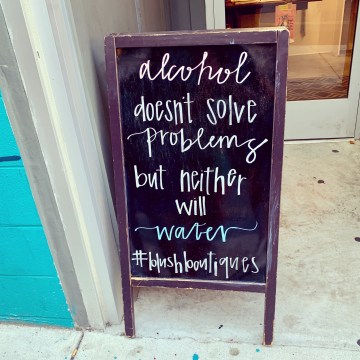 alcohol
doesn't solve
problems
but neither
will
water
#blushboutiques